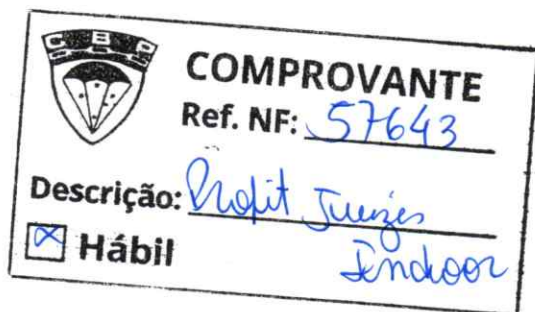 CBP
COMPROVANTE
Ref. NF: 57643
Descrição: Profit Juizes
Hábil
Indoor